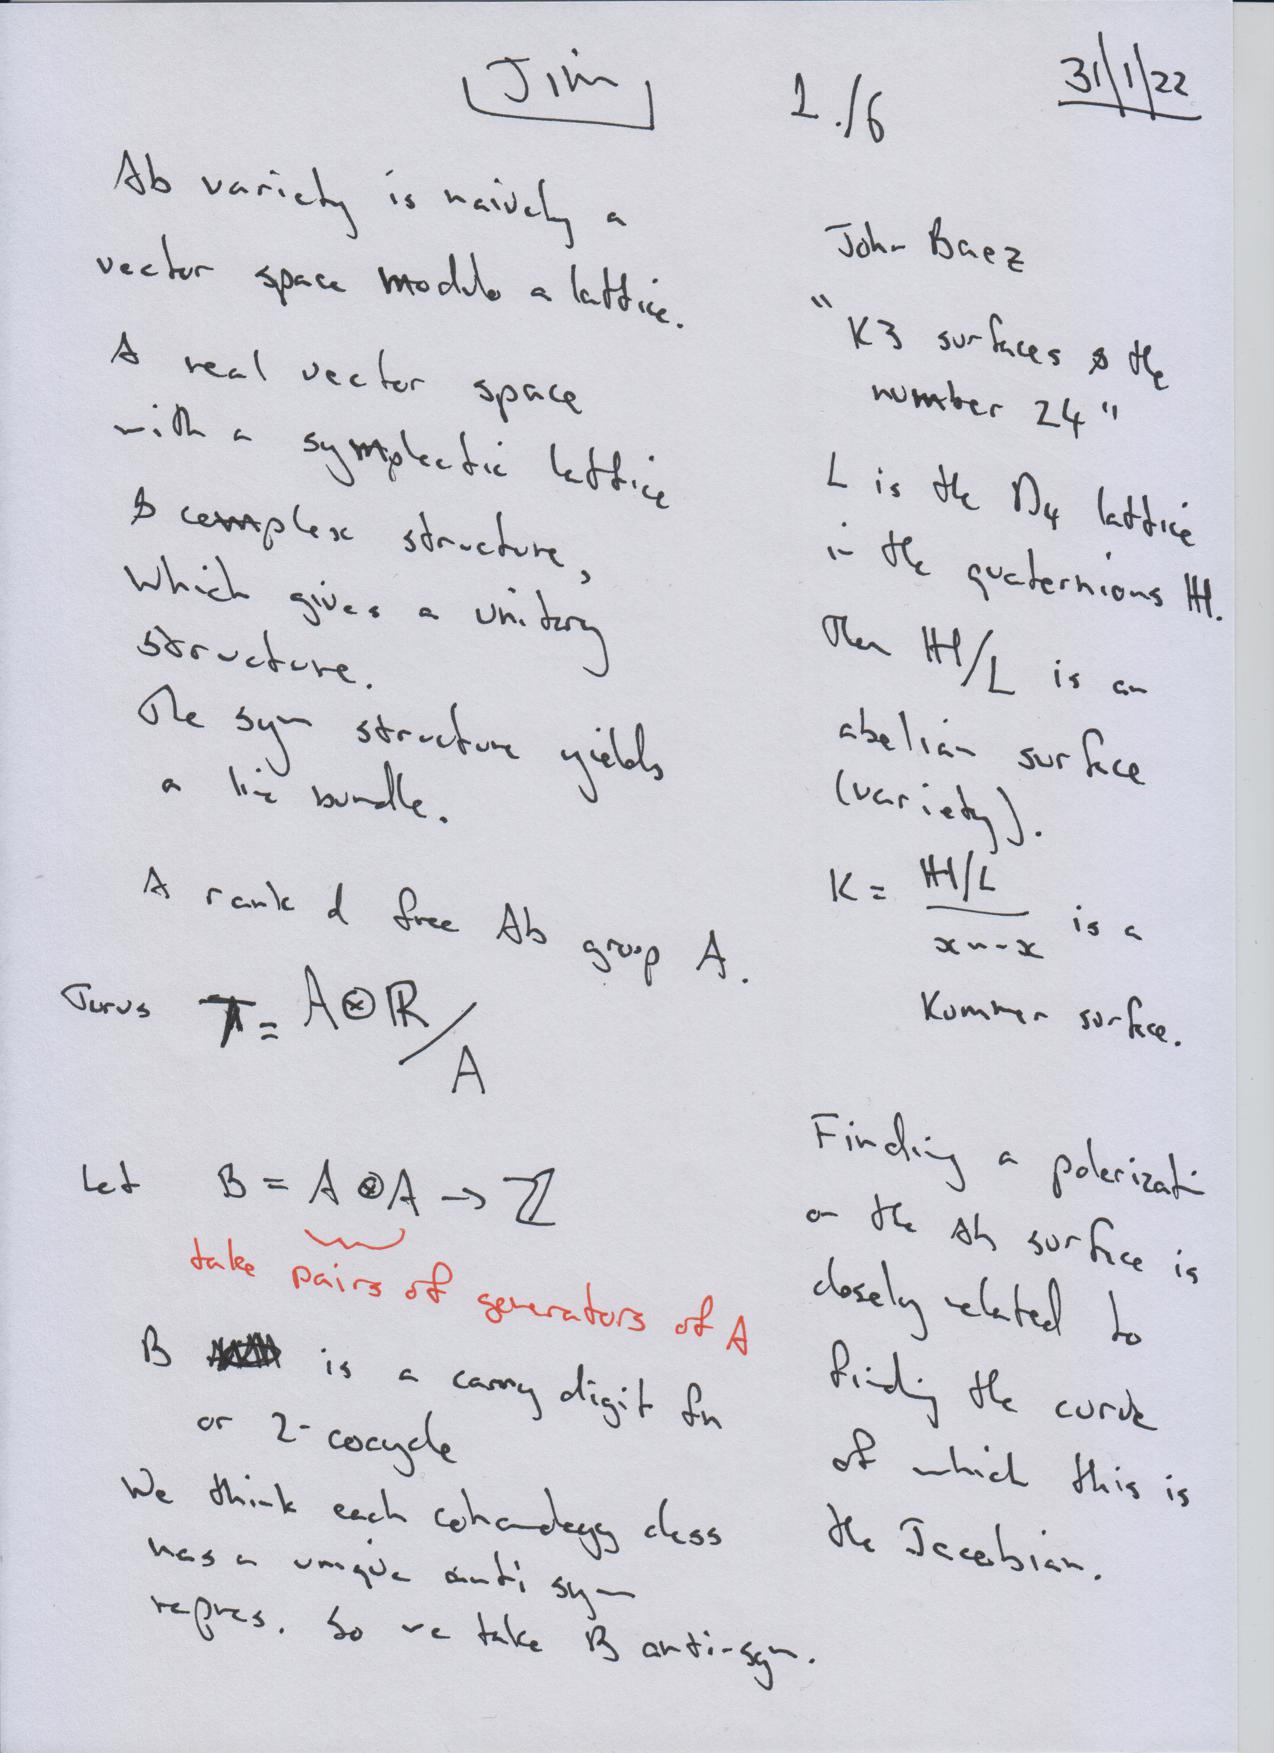 Jim
1./6
31/1/22
Ab variety is naively a
vector space modulo a lattice.
A real vector space
with a symplectic lattice
& complex structure,
which gives a unitary
structure.
The sym structure yields
a line bundle.
A rank d free Ab group A.
Torus T = A⊗ℝ/A
Let B = A⊗A → ℤ
take pairs of generators of A
B is a carry digit fn
or 2-cocycle
We think each cohomology class
has a unique anti sym
repres. So we take B anti-sym.
John Baez
"K3 surfaces & the
number 24"
L is the D4 lattice
in the quaternions ℍ.
Then ℍ/L is an
abelian surface
(variety).
K = ℍ/L / x~-x is a
Kummer surface.
Finding a polarizati
on the Ab surface is
closely related to
finding the curve
of which this is
the Jacobian.